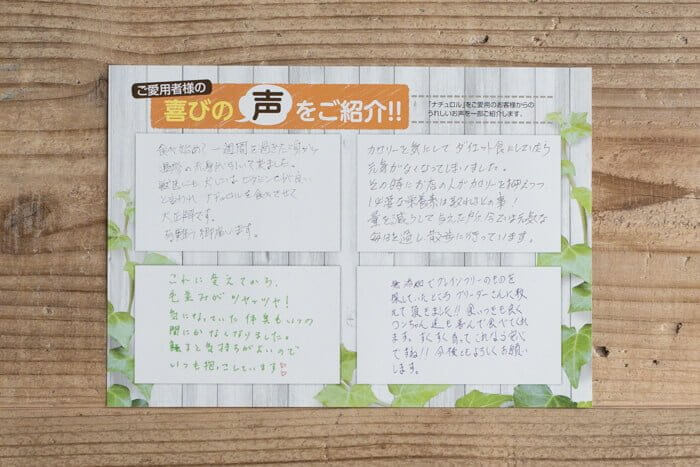 ご愛用者様の
喜びの声をご紹介!!
「ナチュロル」をご愛用のお客様からの
うれしいお声を一部ご紹介します。
食べ始めて一週間を過ぎた頃から
獣医にも
と言われ ナチュロルを食べさせて
大正解です。
有難う御座います。
カロリーを気にしてダイエット食にしていたら
元気がなくなってしまいました。
その時にお店の人がカロリーを抑えつつ
必要な栄養素は取れるとの事!
量を減らして与えた所、今では元気な
毎日を過し散歩に行っています。
これに変えてから、
毛並みがツヤッツヤ!
気になっていた体臭もいつの
間にかなくなりました。
触ると気持ちがよいので
いつも抱っこしています♡
無添加でグレインフリーのものを
探していたところ ブリーダーさんに教
えて頂きました!! 食いつきも良く
ワンちゃん達も喜んで食べてくれ
ます。すくすく育ってこれなら安心
ですね!! 今後ともよろしくお願い
します。